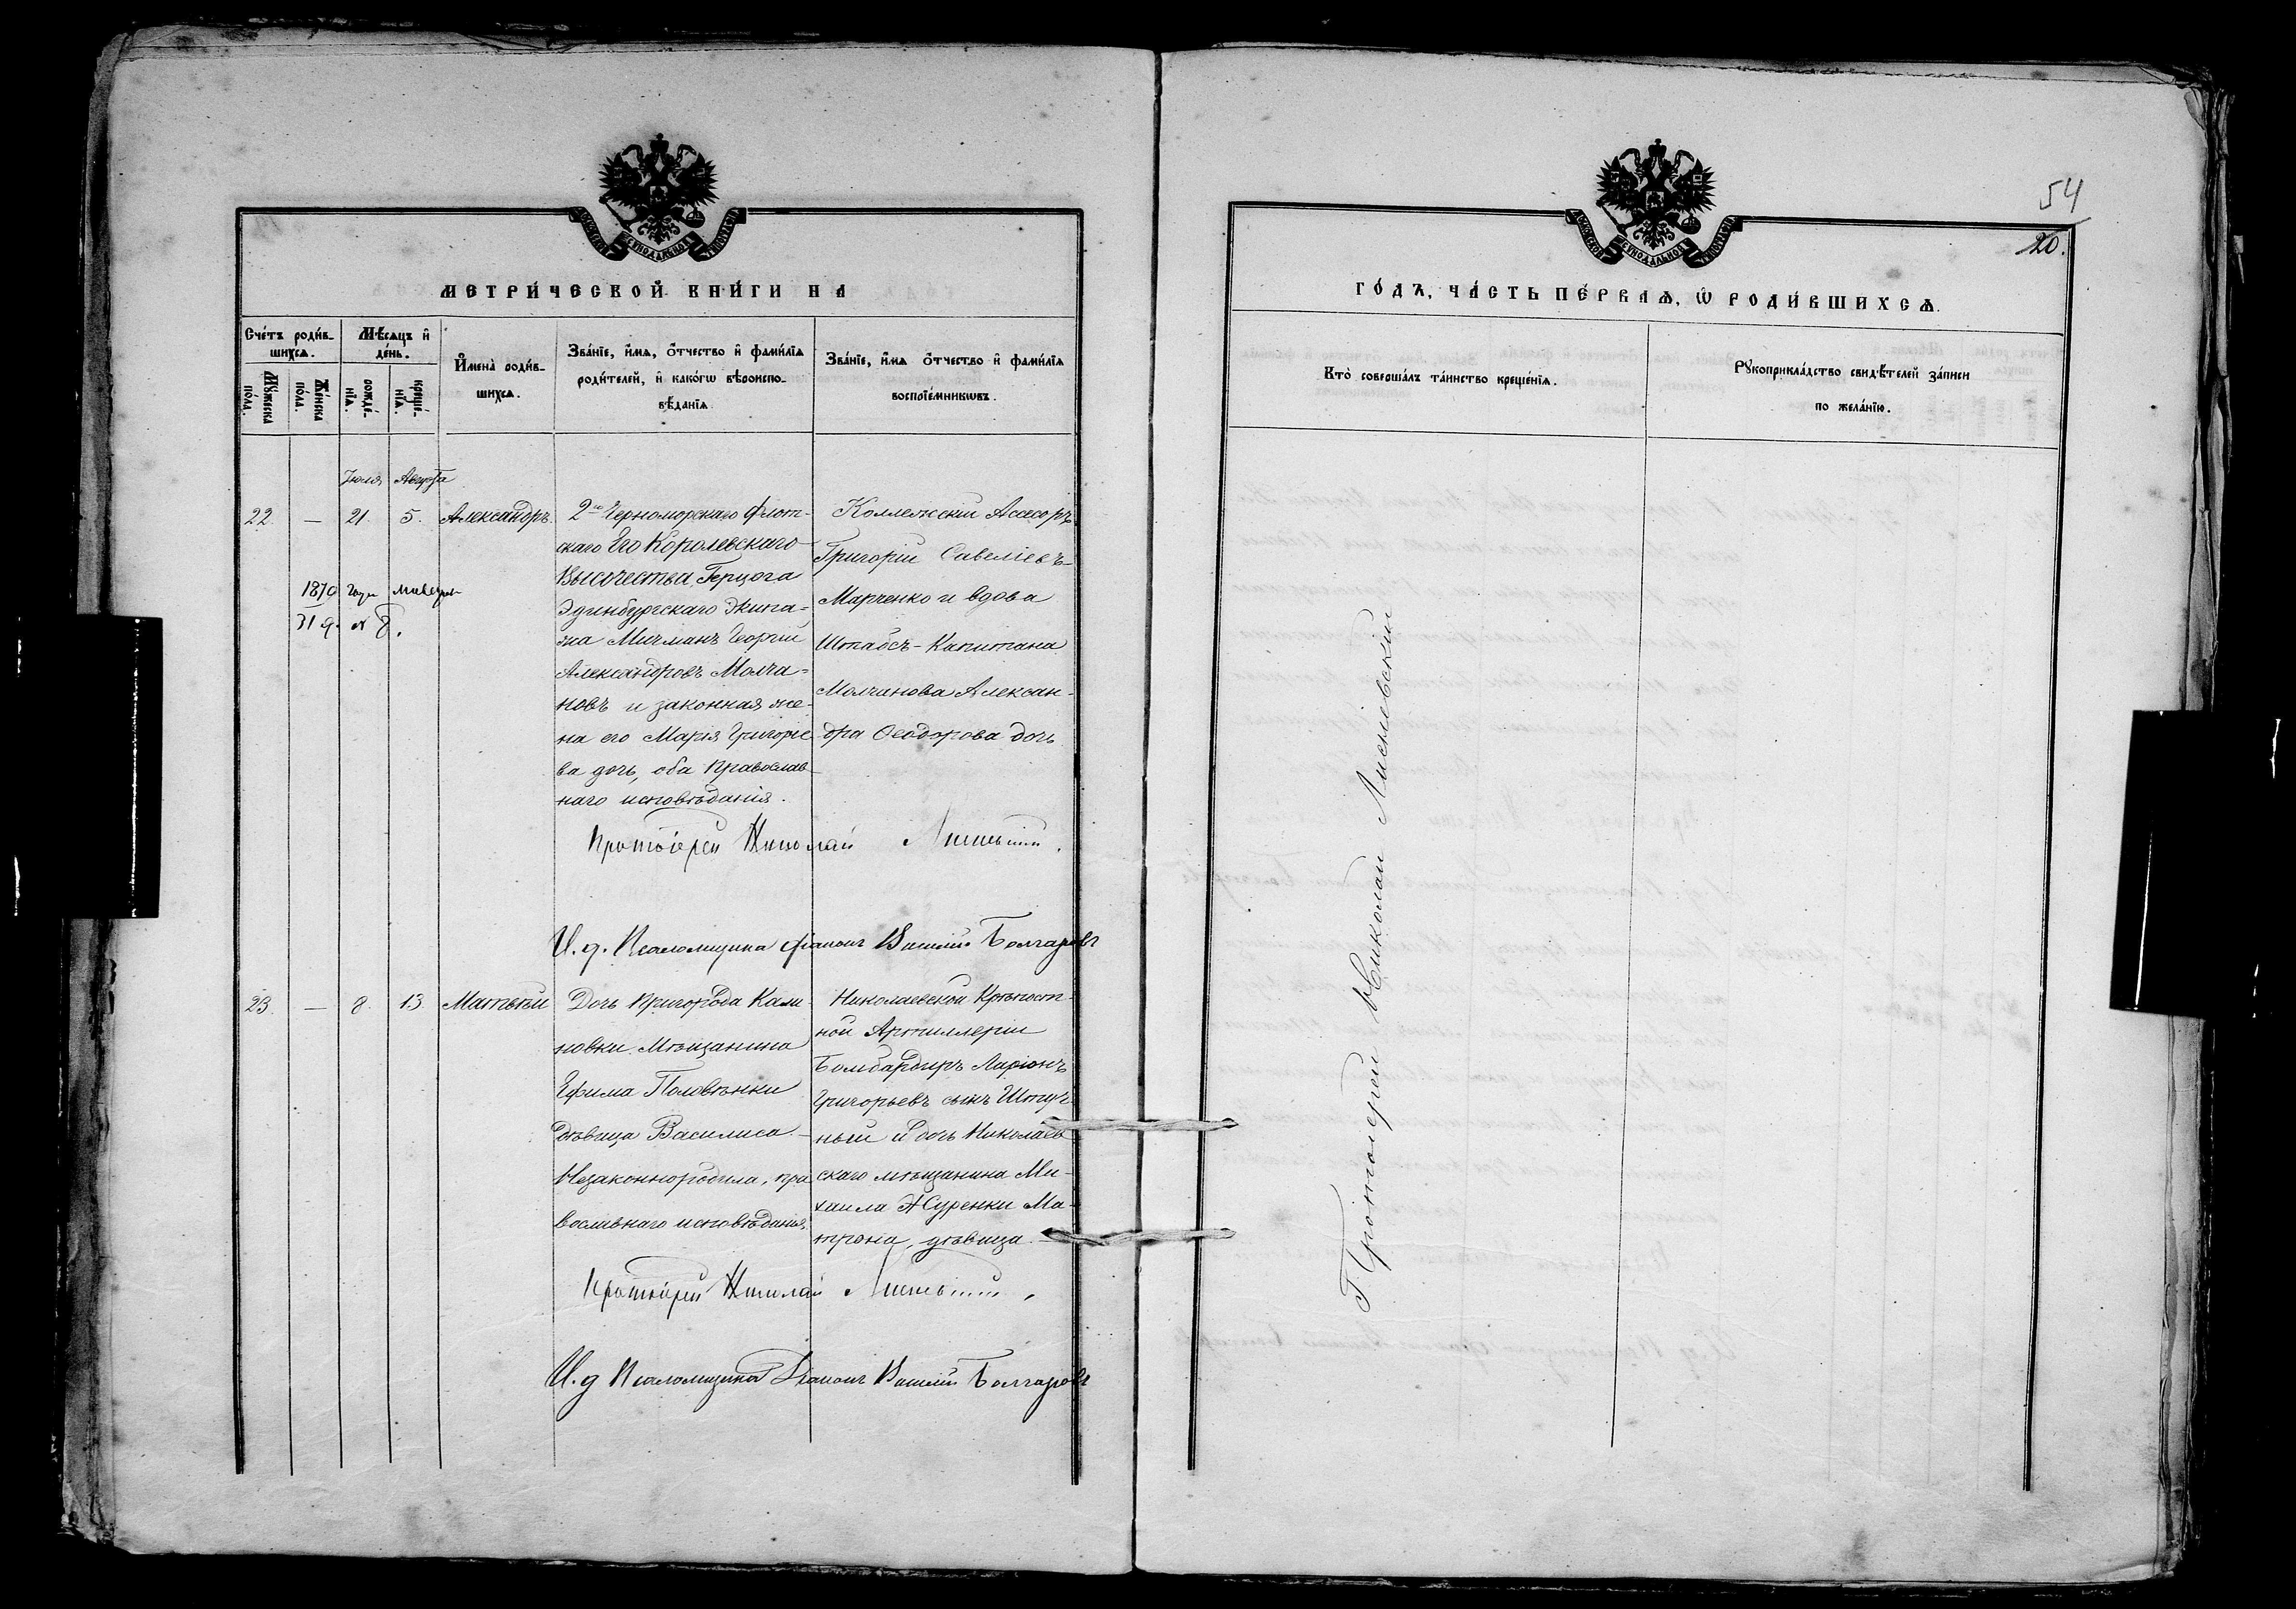 МЕТРИ́ЧЕСКОЙ КНИ́ГИ НА
Сче́тъ роди́в-
шихсѧ.
Мѣ́сѧцъ и҆
день.
И҆мена̀ роди́в-
шихсѧ.
Зва́нїе, и҆́мѧ, ѻ҆́тчество и҆ фами́лїѧ
роди́телей, и҆ како́гѡ вѣроиспо-
вѣ́данїѧ
Зва́нїе, и҆́мѧ ѻ҆́тчество и҆ фами́лїѧ
воспрїе́мникѡвъ.
Мꙋ́жеска
по́ла.
Же́нска
по́ла.
рожде́-
нїѧ.
креще́-
нїѧ.
Іюля Августа
22. — 21. 5. Александръ.
2го Черноморскаго Флот-
скаго Его Королевскаго
Высочества Герцога
Эдинбургскаго Экипа=
жа Мичманъ Георгій
Александровъ Молча=
новъ и законная же-
на его Марія Григоріе
ва дочь, оба Православ-
наго исповѣданія.
Коллежскій Ассесоръ
Григорій Савеліевъ
Марченко и вдова
Штабсъ-Капитана
Молчанова Алексан-
дра Ѳеодорова дочь
1870 года
31 д. № 8.
Протоіерей Николай
И. д. Псаломщика Діаконъ Василій Болгаровъ
23. — 8. 13. Матѳѣй
Дочь Пригорода Кали-
новки Мѣщанина
Ефима Половѣнки
дѣвица Василиса
Незаконнородила, пра
вославнаго исповѣданія.
Николаевской Крѣпост-
ной Артиллеріи
Бомбардиръ Ларіонъ
Григорьевъ сынъ Штуч-
ный и дочь Николаев
скаго мѣщанина Ми-
хаила Журенки Ма-
трона, дѣвица.
Протоіерей Николай
И. д Псаломщика Діаконъ Василій Болгаровъ
54
20.
ГО́ДЪ, ЧА́СТЬ ПЕ́РВАѦ, Ѽ РОДИ́ВШИХСѦ.
Кто̀ соверша́лъ та́инство креще́нїѧ.
Рꙋкоприкла́дство свидѣ́телей за́писи
по жела́нїю.
Протоіерей Николай Лисневскій